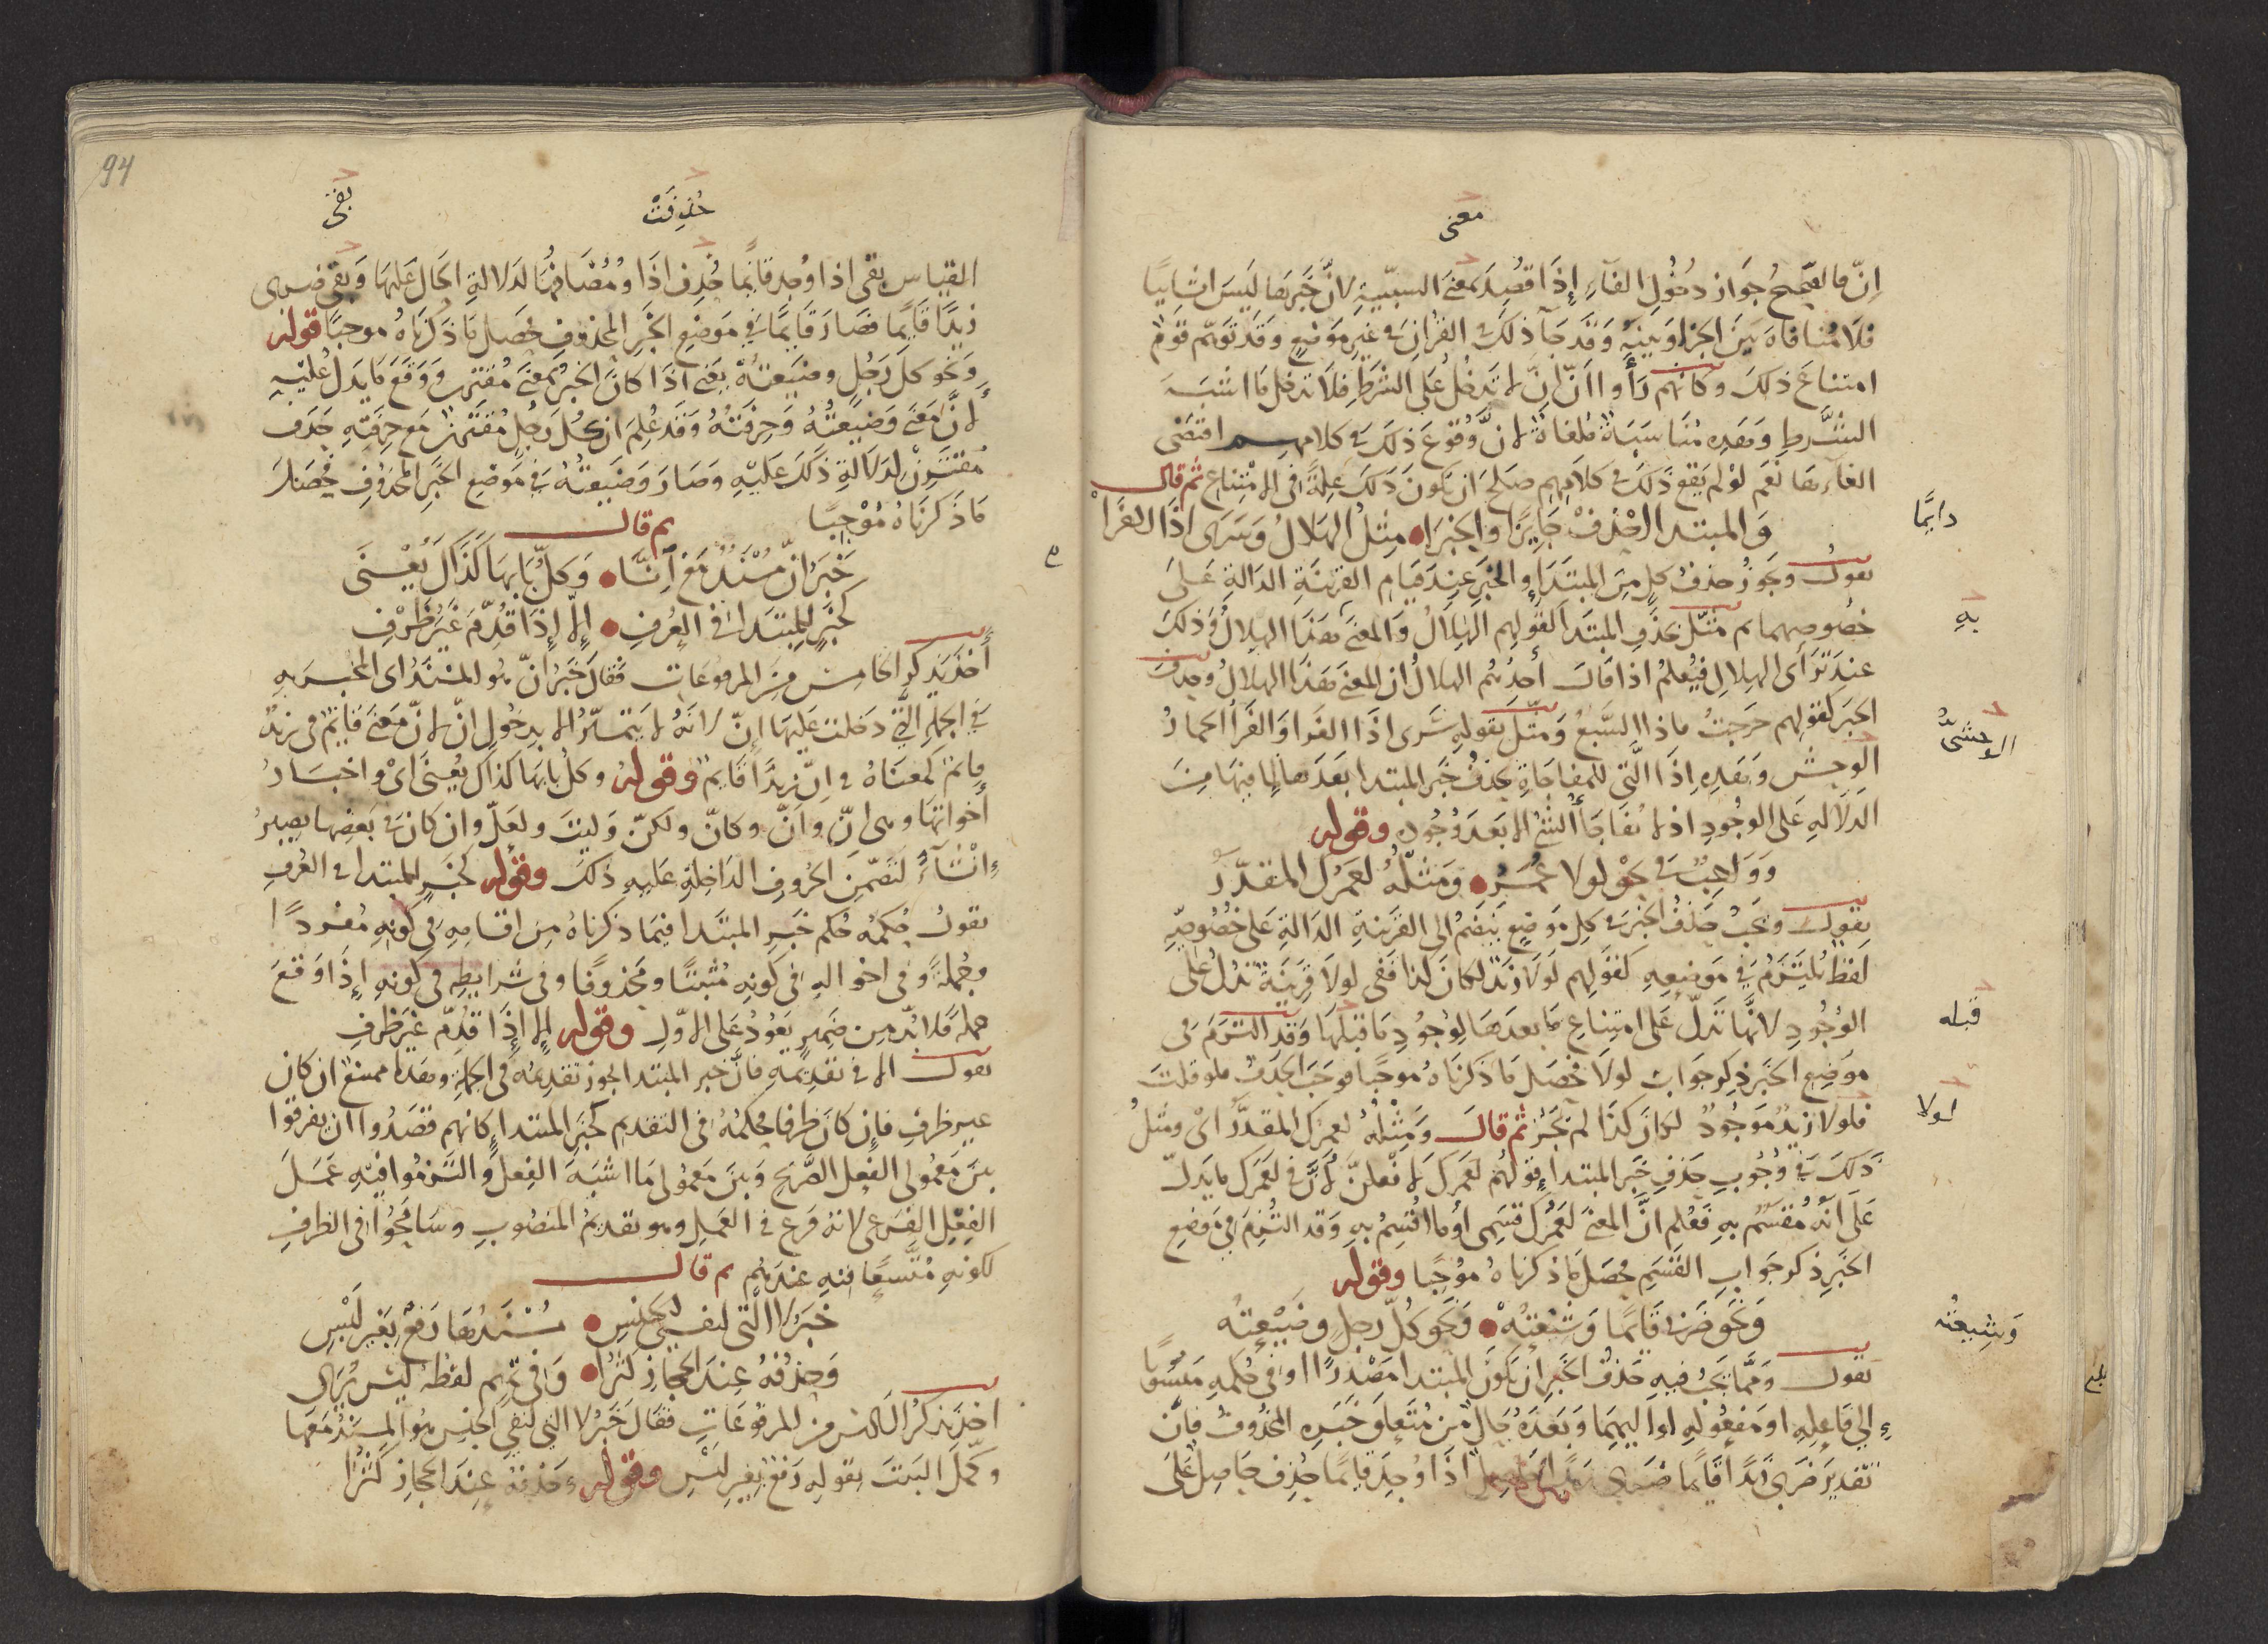 معنى
إنّ فالصحيح جواز دخول الفآء إذا قصد معنى السببيّة لانّ خبرها ليس انشائيا
فلا منافاة بين الجزاء وبينه وقد جآء ذلك في القران في غير موضع وقد توهّم قوم
امتناع ذلك وكانهم رأوا انّ إنّ لا تدخل على الشرط فلا تدخل ما اشبه
الشرط وهذه مناسبة ملغاة لانّ وقوع ذلك في كلامهم اقتضى
الغآءها نعم لو لم يقع ذلك في كلامهم صلح ان يكون ذلك علة في الامتناع ثم قال
والمبتدا احذف جايزا والخبرا • مثل الهلال وسرى اذا الفرا
دايما
نقول ويجوز حذف كل من المبتدا والخبر عند قيام القرينة الدالة على
خصوصهما ثم مثّل بحذف المبتدا كقولهم الهلال والمعنى هذا الهلال وذلك
به
عند ترأى الهلال فيعلم اذا قال أحدهم الهلال ان المعنى هذا الهلال وحذف
الخبر كقولهم خرجت فاذا السبع ومثّل بقوله سرى اذا الفرا والفرأ الحمار
الوحشىّ
الوحش وبعده اذا التى للمفاجاة بحذف خبر المبتدا بعدها لما فيها من
الدلالة على الوجود اذ لا يفاجأ الشئ الا بعد وجوده وقوله
وواجب في نحو لولا عمر • ومثله لعمرك المقدّر
نقول ويجب حذف الخبر في كل موضع ينضم الى القرينة الدالة على خصوصيّه
لفظ يلتزم في موضعه كقولهم لولا زيد لكان كذا ففى لولا قرينة تدل على
الوجود لانّها تدلّ على امتناع ما بعدها لوجود ما قبلها وقد التزم في
قبله
موضع الخبر ذكر جواب لولا فحصل ما ذكرناه موجبا فوجب الحذف فلو قلت
فلولا زيد موجود لكان كذا لم يجز ثم قال ومثله لعمرك المقدّر اى ومثل
لولا
ذلك في وجوب حذف خبر المبتدا قولهم لعمرك لافعلنّ لانّ في لعمرك ما يدلّ
على انّه مقسم به فعلم انّ المعنى لعمرك قسمى أو ما اقسم به وقد التزم في موضع
الخبر ذكر جواب القسم فحصل ما ذكرناه موجبا وقوله
ونحو ضربى قايما وشيعته • ونحو كلّ رجل وضيعته
وشيعته
نقول ومما يجب فيه حذف الخبر ان يكون المبتدا مصدرا او في حكمه منسوبا
إلى فاعله او مفعوله او اليهما وبعده حال من متعلق خبره المحذوف فانّ
تقدير ضربى زيدا قايما ضربى زيدا حاصل اذا وجد قايما حذف حاصل على
94
حذفت
بقى
القياس بقى اذا وجد قايما حذف اذا ومضافها لدلالة الحال عليها وبقى ضربى
زيدا قايما فصار قايما في موضع الخبر المحذوف فحصل ما ذكرناه موجبا قوله
ونحو كل رجل وضيعته يعنى اذا كان الخبر بمعنى مقترن ووقع ما يدل عليه
لانّ معنى وضيعته وحرفته وقد علم ان كل رجل مقترن مع حرفته حذف
مقترن لدلالة ذلك عليه وصار وضيعته في موضع الخبر المحذوف فحصل
ما ذكرناه موجبا ثم قال
خبر انّ مسند مع انّا • وكلّ بابها كذاك يعنى
كخبر للمبتدا في العرف • إلا إذا قدّم غير ظرف
أخذ يذكر الخامس من المرفوعات فقال خبر انّ هو المسند اى المخبر به
في الجملة التى دخلت عليها إنّ لانه لا يتميّز الا بدخول انّ لانّ معنى قايم في زيد
قايم كمعناه في انّ زيدا قايم وقوله وكل بابها كذاك يعنى اى واخبار
أخواتها وهى انّ وأنّ وكانّ ولكنّ وليت ولعلّ وان كان في بعضها يصير
انشآء لتضمن الحروف الداخلة عليه ذلك وقوله كخبر المبتدا في العرف
نقول حكمه حكم خبر المبتدا فيما ذكرناه من اقسامه في كونه مفردا
وجملة وفي احواله في كونه مثبتا ومحذوفا وفي شرايطه في كونه إذا وقع
جملة فلا بدّ من ضمير يعود على الاوّل وقوله إلا إذا قدّم غير ظرف
نقول الا في تقديمه فانّ خبر المبتدا يجوز تقديمه في الجملة وهذا ممتنع ان كان
غير ظرف فإن كان ظرفا فحكمه في التقديم كخبر المبتدا كانهم قصدوا ان يفرقوا
بين معمولى الفعل الصّريح وبين معمولى ما اشبه الفعل والتزموا فيه عمل
الفعل الفرعى لانه فرع في العمل وهو تقديم المنصوب وسامحوا في الظرف
لكونه متّسعا فيه عندهم ثم قال
خبر لا التى لنفى الجنس • مسندها رفع بغير لبس
وحذفه عند الحجاز كثرا • وفى تميم لفظه ليس يرى
اخذ يذكر السادس من المرفوعات فقال خبر لا التى لنفى الجنس هو المسند معها
وكمّل البيت بقوله رفع بغير لبس وقوله وحذفه عند الحجاز كثرا